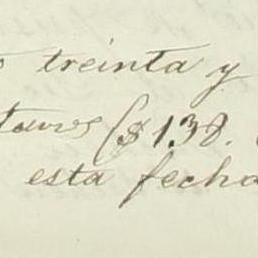 treinta y
tavos ($138.
esta fecha